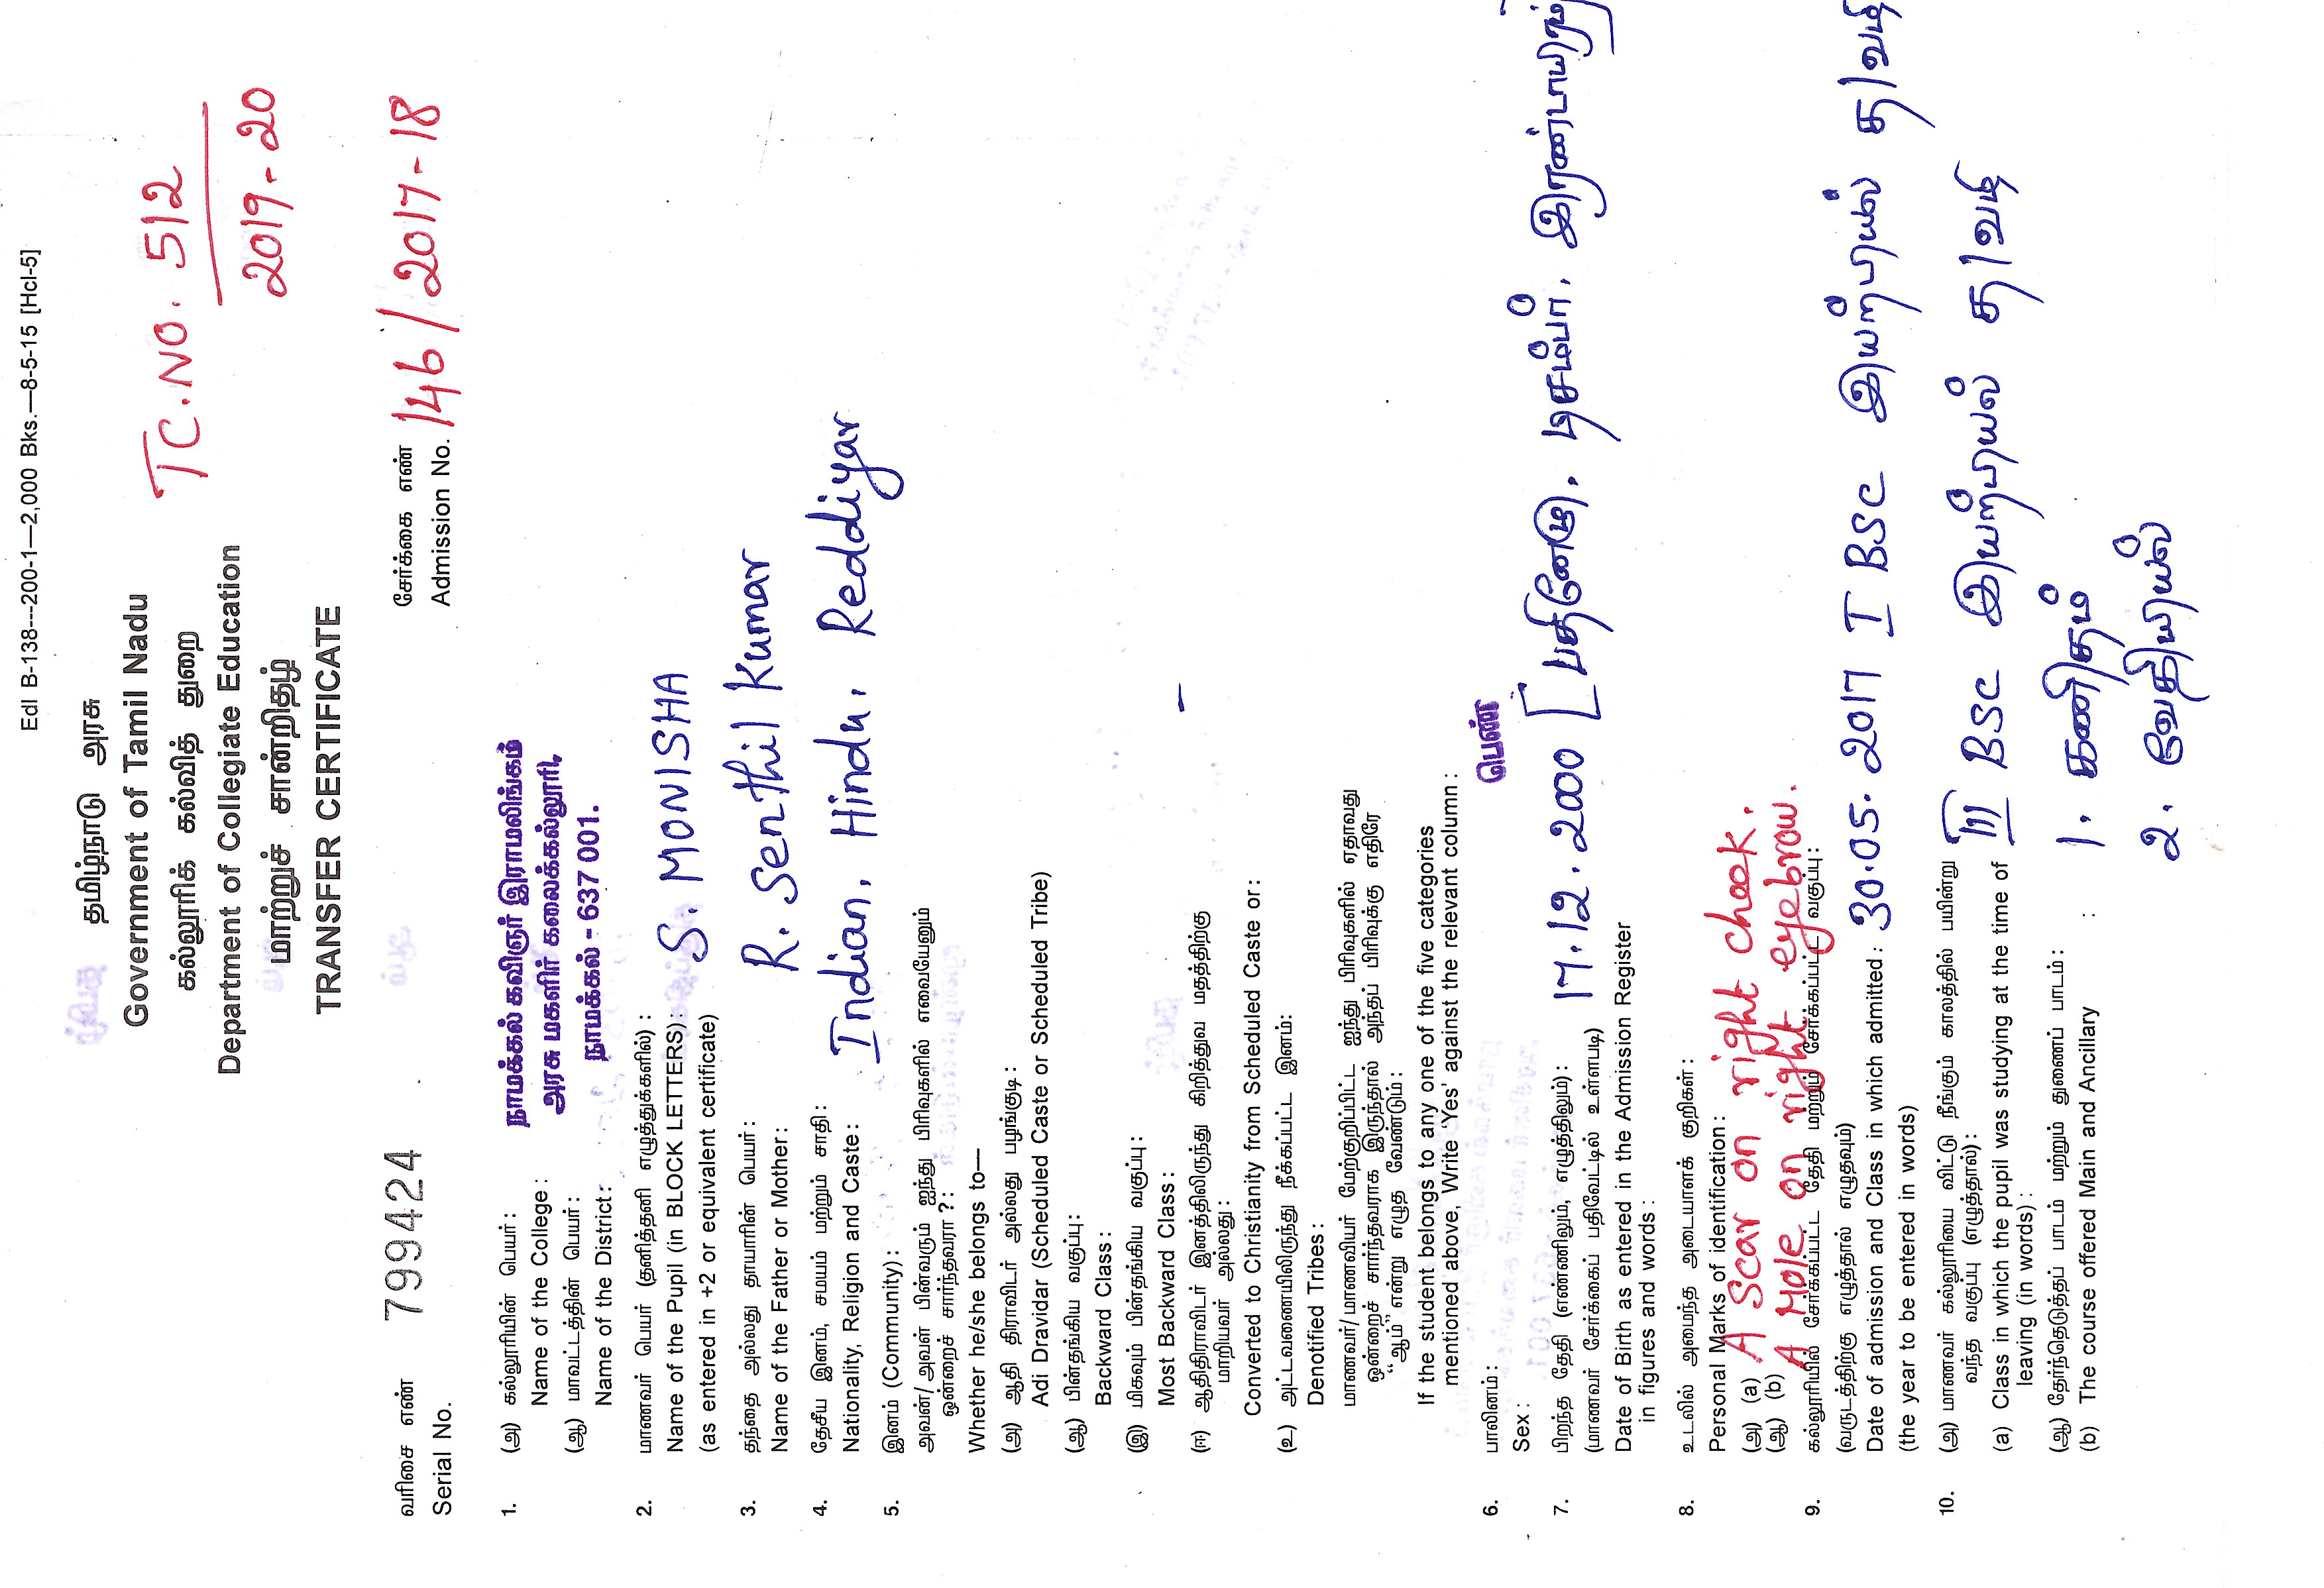 Edl B-138—200-1—2,000 Bks.—8-5-15 [Hcl-5]
தமிழ்நாடு அரசு
Government of Tamil Nadu
கல்லூரிக் கல்வித் துறை
Department of Collegiate Education
மாற்றுச் சான்றிதழ்
TRANSFER CERTIFICATE
TC.NO. 512
2019-20
வரிசை எண் 799424 சேர்க்கை எண்
Serial No. Admission No. 146/2017-18
1. (அ) கல்லூரியின் பெயர் : நாமக்கல் கவிஞர் இராமலிங்கம்
Name of the College : அரசு மகளிர் கலைக்கல்லூரி,
(ஆ) மாவட்டத்தின் பெயர் : நாமக்கல் - 637 001.
Name of the District :
2. மாணவர் பெயர் (தனித்தனி எழுத்துக்களில்) :
Name of the Pupil (in BLOCK LETTERS) : S. MONISHA
(as entered in +2 or equivalent certificate)
3. தந்தை அல்லது தாயாரின் பெயர் :
Name of the Father or Mother : R. Senthil Kumar
4. தேசீய இனம், சமயம் மற்றும் சாதி :
Nationality, Religion and Caste : Indian, Hindu, Reddiyar
5. இனம் (Community) :
அவன்/அவள் பின்வரும் ஐந்து பிரிவுகளில் எவையேனும்
ஒன்றைச் சார்ந்தவரா ? :
Whether he/she belongs to—
(அ) ஆதி திராவிடர் அல்லது பழங்குடி :
Adi Dravidar (Scheduled Caste or Scheduled Tribe)
(ஆ) பின்தங்கிய வகுப்பு :
Backward Class :
(இ) மிகவும் பின்தங்கிய வகுப்பு :
Most Backward Class : -
(ஈ) ஆதிதிராவிடர் இனத்திலிருந்து கிறித்துவ மதத்திற்கு
மாறியவர் அல்லது :
Converted to Christianity from Scheduled Caste or :
(உ) அட்டவணையிலிருந்து நீக்கப்பட்ட இனம் :
Denotified Tribes :
மாணவர்/மாணவியர் மேற்குறிப்பிட்ட ஐந்து பிரிவுகளில் ஏதாவது
ஒன்றைச் சார்ந்தவராக இருந்தால் அந்தப் பிரிவுக்கு எதிரே
“ஆம்” என்று எழுத வேண்டும் :
If the student belongs to any one of the five categories
mentioned above, Write ‘Yes’ against the relevant column :
6. பாலினம் : பெண்
Sex :
7. பிறந்த தேதி (எண்ணிலும், எழுத்திலும்) :
(மாணவர் சேர்க்கைப் பதிவேட்டில் உள்ளபடி) 17.12.2000 [பதினேழு, டிசம்பர், இரண்டாயிரம்]
Date of Birth as entered in the Admission Register
in figures and words :
8. உடலில் அமைந்த அடையாளக் குறிகள் :
Personal Marks of identification :
(அ) (a) A Scar on right cheek.
(ஆ) (b) A Mole on right eyebrow.
9. கல்லூரியில் சேர்க்கப்பட்ட தேதி மற்றும் சேர்க்கப்பட்ட வகுப்பு :
(வருடத்திற்கு எழுத்தால் எழுதவும்)
Date of admission and Class in which admitted : 30.05.2017 I BSc இயற்பியல் த/வழி
(the year to be entered in words)
10. (அ) மாணவர் கல்லூரியை விட்டு நீங்கும் காலத்தில் பயின்று
வந்த வகுப்பு (எழுத்தால்) : III BSc இயற்பியல் த/வழி
(a) Class in which the pupil was studying at the time of
leaving (in words) :
(ஆ) தேர்ந்தெடுத்தப் பாடம் மற்றும் துணைப் பாடம் : 1. கணிதம்
(b) The course offered Main and Ancillary :
2. வேதியியல்